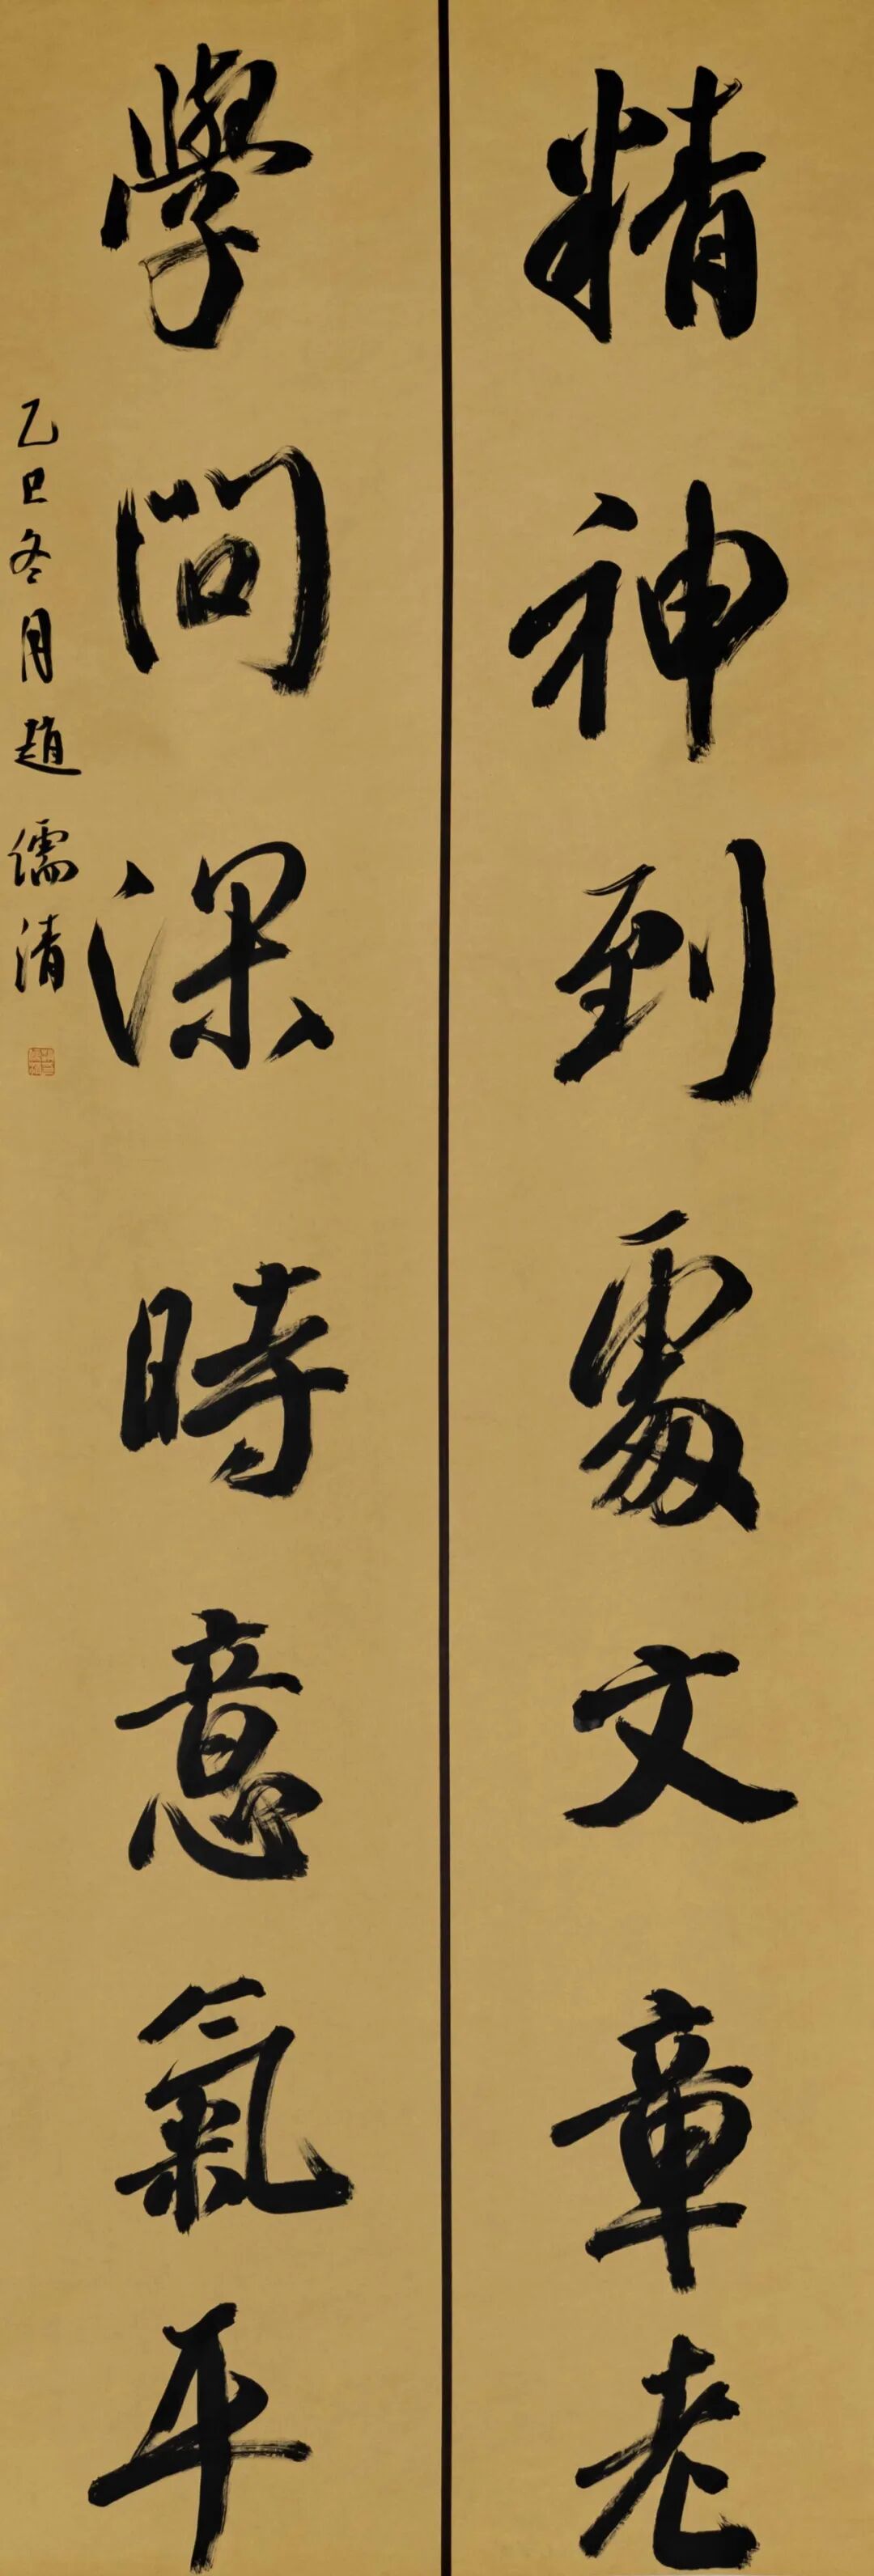 精神到處文章老
學問深時意氣平
乙巳冬月趙儒清